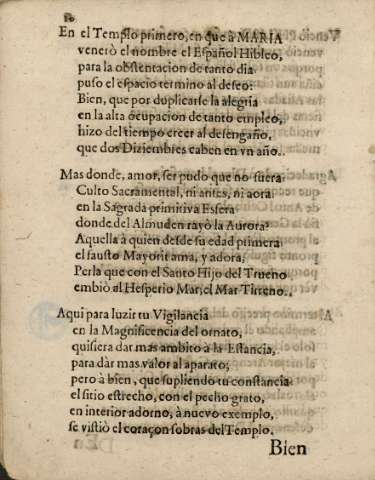 En el Templo primero, en que à MARIA
venerò el nombre el Español Hibleo,
para la obstentacion de tanto dia
puso el espacio termino al deseo:
Bien, que por duplicarse la alegria
en la alta ocupacion de tanto empleo,
hizo del tiempo creer al desengaño,
que dos Diziembres caben en vn año.
Mas donde, amor, ser pudo que no fuera
Culto Sacramental, ni antes, ni aora
en la Sagrada primitiva Esfera
donde del Almuden rayò la Aurora?
Aquella à quien desde su edad primera
el fausto Mayorit ama, y adora;
Perla que con el Santo Hijo del Trueno
embiò al Hesperio Mar, el Mar Tirreno.
Aqui para luzir tu Vigilancia
en la Magnificencia del ornato,
quisiera dar mas ambito à la Estancia,
para dàr mas valor al aparato;
pero à bien, que supliendo tu constancia
el sitio estrecho, con el pecho grato,
en interior adorno, à nuevo exemplo,
se vistiò el coraçon sobras del Templo.
Bien